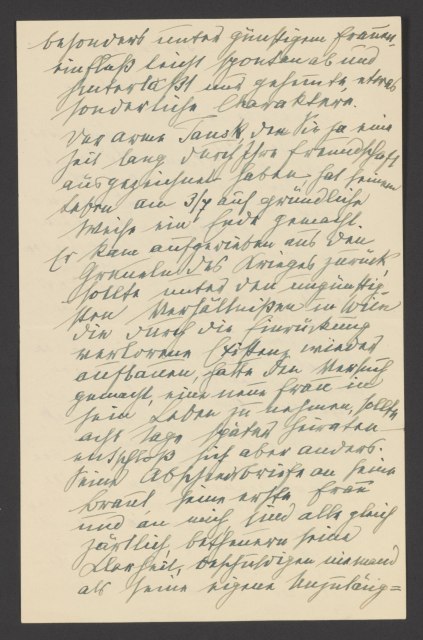 besonders unter günstigem Frauen-
einfluß leicht spontan ab und
hinterläßt nur gehemmte, etwas
sonderliche Charaktere.
Der arme Tausk, den Sie ja eine
Zeit lang durch Ihre Freundschaft
ausgezeichnet haben, hat seinem
Leben am 3/7 auf gründliche
Weise ein Ende gemacht.
Er kam aufgerieben aus den
Greueln des Krieges zurück,
sollte unter den ungünstig-
sten Verhältnißen in Wien
die durch die Einrückung
verlorene Existenz wieder
aufbauen, hatte den Versuch
gemacht, eine neue Frau in
sein Leben zu nehmen, sollte
acht Tage später heiraten –
entschloß sich aber anders.
Seine Abschiedsbriefe an seine
Braut, seine erste Frau
und an mich sind alle gleich
zärtlich, betheuern seine
Klarheit, beschuldigen niemand
als seine eigene Unzuläng=